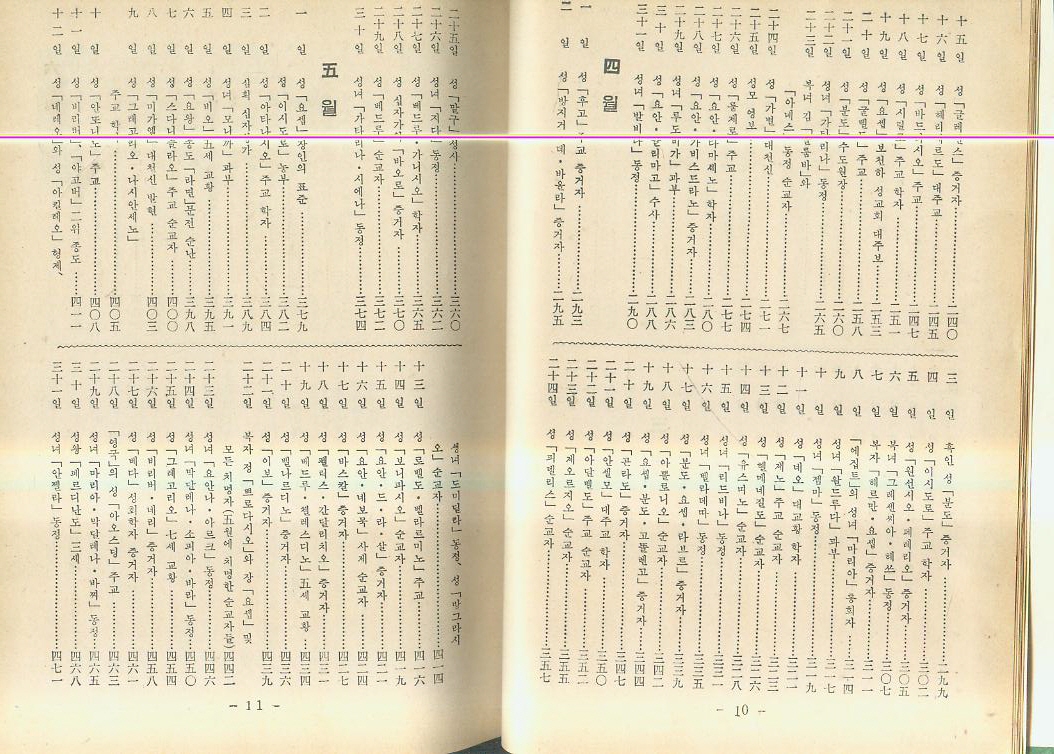 十五일 성「글레멘스」증거자 二四〇
十六일 성「헤리베르도」대주교 二四五
十七일 성「바드리시오」주교 二四七
十八일 성「시릴로」주교 학자 二五一
十九일 성「요셉」보천하 성교회 대주보 二五三
二十일 성 주교 二五八
二十一일 성「분도」수도원장 二六〇
二十二일 성녀「가타리나」동정 二六五
二十三일 복녀 김「골룸바」와
「아녜스」동정 순교자 二六七
二十四일 성「가별」대천신 二七一
二十五일 성모 영보 二七四
二十六일 성 주교 二七七
二十七일 성「요안·다마셰노」학자 二八〇
二十八일 성「요안·가비스드라노」증거자 二八三
二十九일 성녀「루도비가」과부 二八六
三十일 성「요안·글리마고」수사 二八八
三十一일 성녀「발비나」동정 二九〇
四월
一일 성「후고」주교 증거자 二九三
二일 성「방지거·데·바울라」증거자 二九五
三일 흑인 성「분도」증거자 二九九
四일 성「이시도로」주교 학자 三〇二
五일 성「원선시오·페레리오」증거자 三〇五
六일 복녀 동정 三〇七
七일 복자「헤르만·요셉」증거자 三一一
八일 「에집트」의 성녀「마리아」통회자 三一四
九일 성녀「왈드루다」과부 三一七
十일 성녀「젬마」동정 三一九
十一일 성「네오」대교황 학자 三二一
十二일 성「제노」주교 순교자 三二三
十三일 성「헬메네질도」순교자 三二六
十四일 성「유스띠노」순교자 三二八
十五일 성녀「리드비나」동정 三三一
十六일 성녀 동정 三三五
十七일 성「분도·요셉·라브르」증거자 三三九
十八일 성「아뽈로니오」순교자 三四二
十九일 성「요셉·분도·고똘렌고」증거자 三四四
二十일 성「곤라도」증거자 三四七
二十一일 성「안셀모」대주교 학자 三五〇
二十二일 성「아달벨도」주교 순교자 三五二
二十三일 성「제오르지오」순교자 三五五
二十四일 성「피델리스」순교자 三五七
- 10 -
二十五일 성「말구」성사 三六〇
二十六일 성녀「지다」동정 三六二
二十七일 성「베드루·가니시오」학자 三六五
二十八일 십자가의 성「바오로」증거자 三七〇
二十九일 성「베드루」순교자 三七二
三十일 성녀「가타리나·시에나」동정 三七四
五월
一일 성「요셉」장인의 표준 三七九
성「이시도로」농부 三八二
二일 성「아타나시오」주교 학자 三八四
三일 십자가 三八九
四일 성녀「모니까」과부 三九一
五일 성「비오」五세 교황 三九五
六일 성「요왕」종도「라띤」문전 순난 三九八
七일 성「스다니슬라오」주교 순교자 四〇〇
八일 성「미가엘」대천신 발현 四〇三
九일 성「그레고리오·나시안세노」
주교 학자 四〇五
十일 성「안또니노」주교 四〇八
十一일 성「비리버」「야고버」二위 종도 四一一
十二일 성「네레오」와 성「아킬레오」형제、
성녀「드미띨라」동정、성「방그라시
오」순교자 四一四
十三일 성「로벨도·벨라르미노」주교 四一六
十四일 성「보니파시오」순교자 四一九
十五일 성「요안·드·라·살」증거자 四二一
十六일 성「요안·네보묵」사제 순교자 四二四
十七일 성「바스칼」증거자 四二七
十八일 성「펠리스·간달리치오」증거자 四三一
十九일 성「베드루·첼레스디노」五세 교황 四三四
二十일 성「벨나르디노」증거자 四三六
二十一일 성「이보」증거자 四三九
二十二일 복자 정「쁘로다시오」와 장「요셉」및
모든 치명자(五월에 치명한 순교자들) 四四二
二十三일 성녀「요안나·아르크」동정 四四六
二十四일 성녀「막달레나·소피아·바라」동정 四五〇
二十五일 성「그레고리오」七세 교황 四五四
二十六일 성「비리버·네리」증거자 四五八
二十七일 성「베다」성회학자 증거자 四六一
二十八일 「영국」의 성「아오스딩」주교 四六三
二十九일 성녀「마리아·막달레나·바찌」동정 四六五
三十일 성왕「페르디난도」三세 四六八
三十一일 성녀「안젤라」동정 四七一
- 11 -